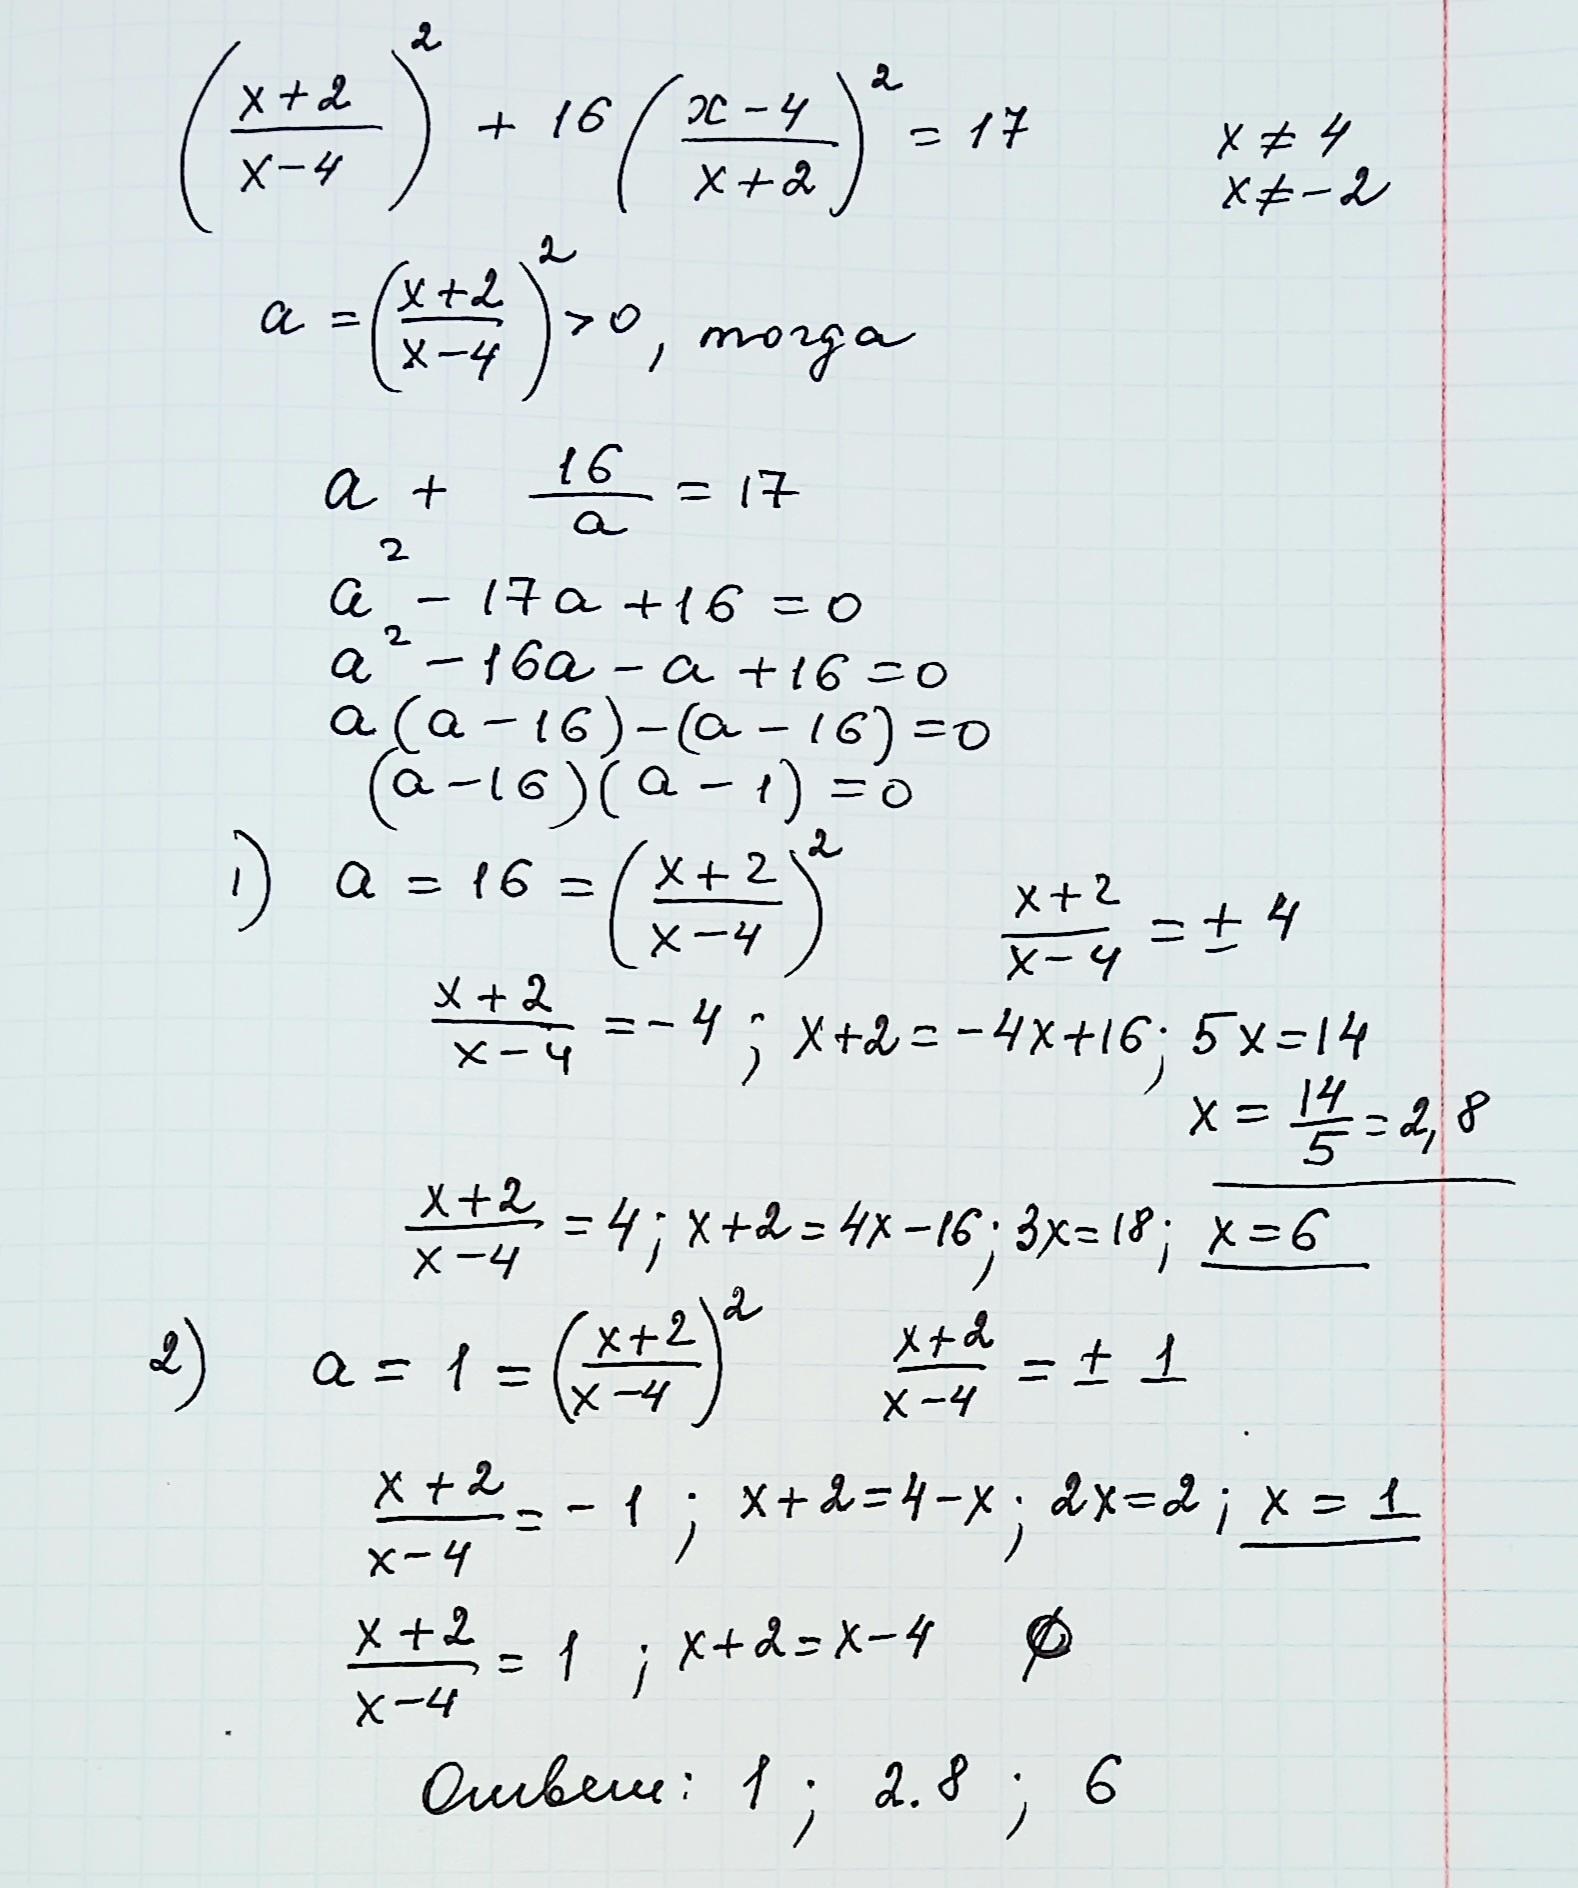 ((x+2)/(x-4))² + 16((x-4)/(x+2))² = 17 x ≠ 4
x ≠ -2
a = ((x+2)/(x-4))² > 0, тогда
a + 16/a = 17
a² - 17a + 16 = 0
a² - 16a - a + 16 = 0
a(a-16)-(a-16)=0
(a-16)(a-1)=0
1) a = 16 = ((x+2)/(x-4))² (x+2)/(x-4) = ± 4
(x+2)/(x-4) = -4; x+2=-4x+16; 5x=14
x = 14/5 = 2,8
(x+2)/(x-4) = 4; x+2=4x-16; 3x=18; x=6
2) a = 1 = ((x+2)/(x-4))² (x+2)/(x-4) = ± 1
(x+2)/(x-4) = -1; x+2=4-x; 2x=2; x = 1
(x+2)/(x-4) = 1; x+2=x-4 ∅
Ответ: 1; 2.8; 6